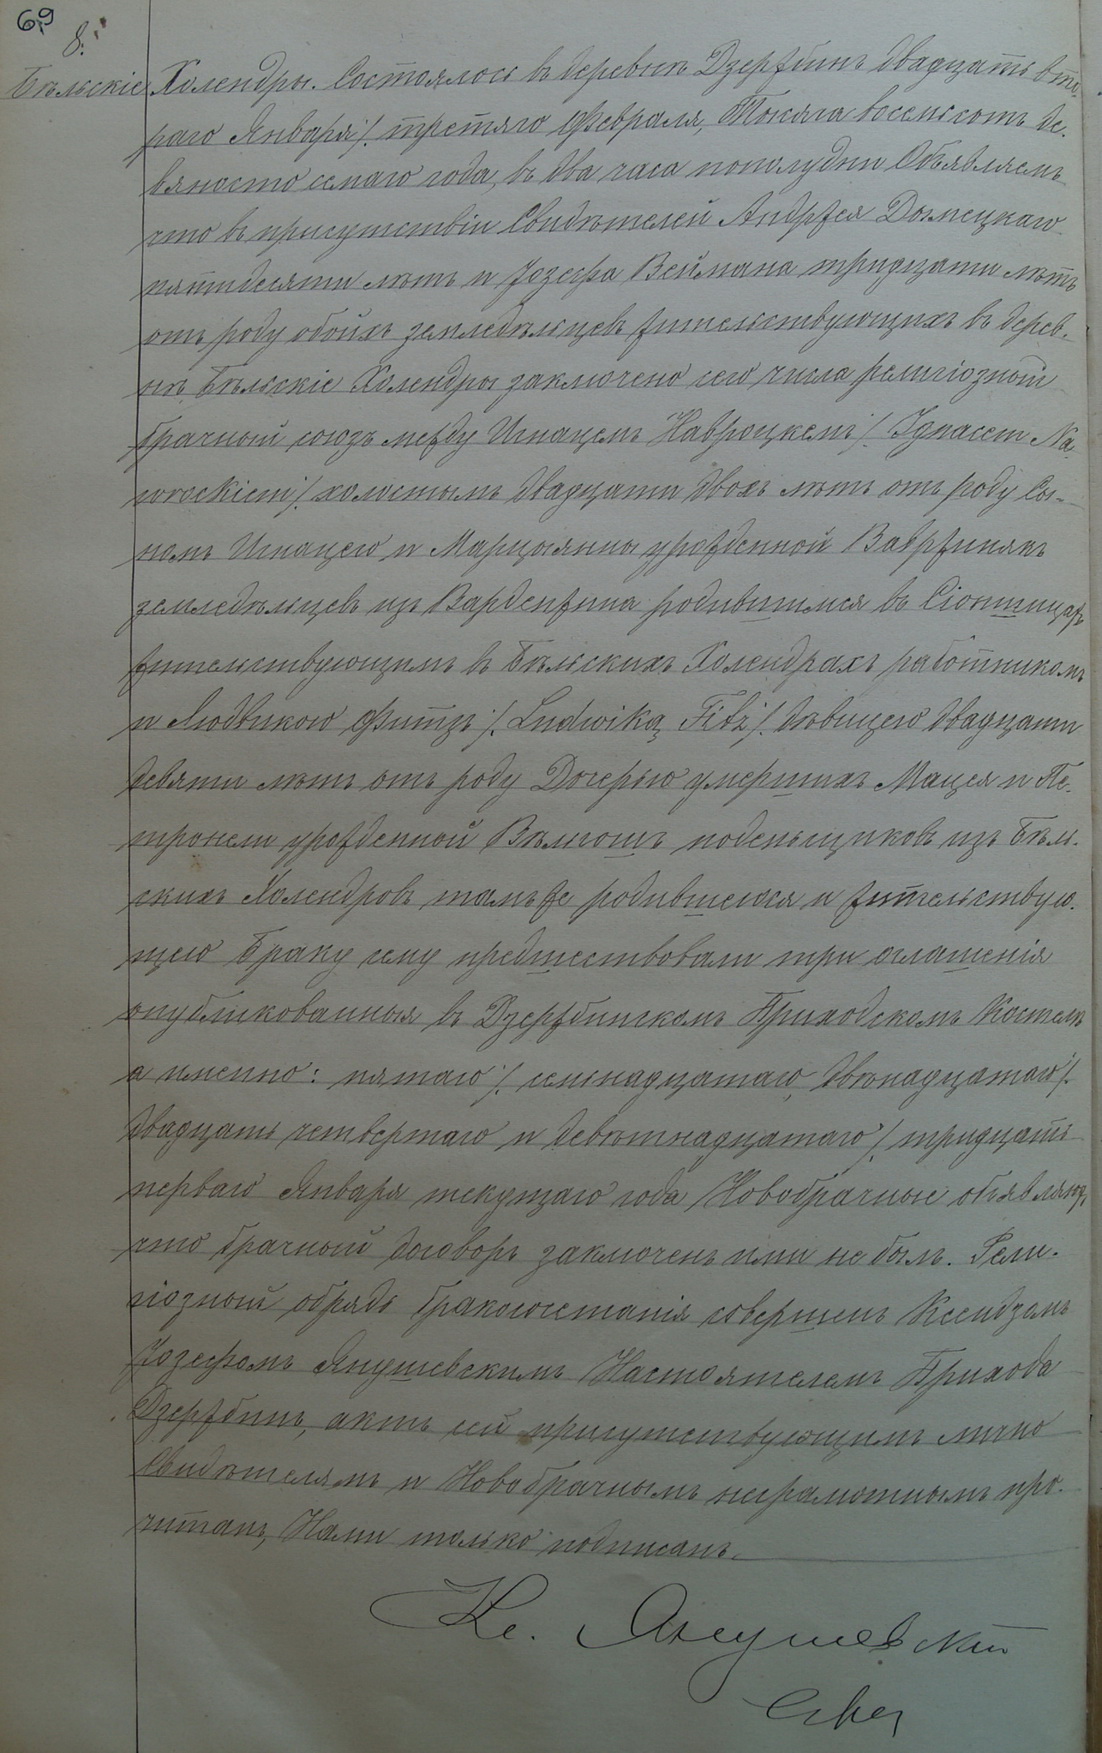 69
8.
Бѣльскіе Холендры. Состоялось въ деревнѣ Дзержбинъ двадцать вто-
раго Января /: третяго Февраля, Тысяча восемьсотъ де-
вяносто семаго года, въ два часа пополудни Объявляемъ
что въ присутствіи Свидѣтелей Андржея Домецкаго
пятидесяти лѣтъ и Іозефа Веймана тридцати лѣтъ
отъ роду обоихъ земледѣльцевъ жительствующихъ въ дерев-
нѣ Бѣльскіе Холендры заключено сего числа религіозный
брачный союзъ между Игнацемъ Навроцкемъ /: Ignacem Na-
wrockiem /: холостымъ двадцати двохъ лѣтъ отъ роду Сы-
номъ Игнацею и Марцыянны урожденной Вавржинякъ
земледѣльцевъ изъ Варденжина родившимся въ
жительствующимъ въ Бѣльскихъ Холендрахъ работникомъ
и Людвикою Фитзъ /: Ludwiką Fitz /: дѣвицею двадцати
девяти лѣтъ отъ роду Дочерью умершихъ Мацея и Пе-
тронели урожденной поденьщиковъ изъ Бѣль-
скихъ Холендровъ тамъже родившеюся и жительствую-
щею Браку сему предшествовали три оглашенія
опубликованныя въ Дзержбинскомъ Приходскомъ Костелѣ
а именно: пятаго /: семьнадцатаго, двѣнадцатаго /:
двадцать четвертаго и девятнадцатаго /: тридцать
перваго Января текущаго года Новобрачные объявляютъ
что брачный договоръ заключенъ ими не былъ. Рели-
гіозный обрядъ бракосочетанія совершенъ Ксендзомъ
Іозефомъ Янушевскимъ Настоятелемъ Прихода
Дзержбинъ, актъ сей присутствующимъ лично
Свидѣтелямъ и Новобрачнымъ неграмотнымъ про-
читанъ, Нами только подписанъ.
Кс. Янушевскій